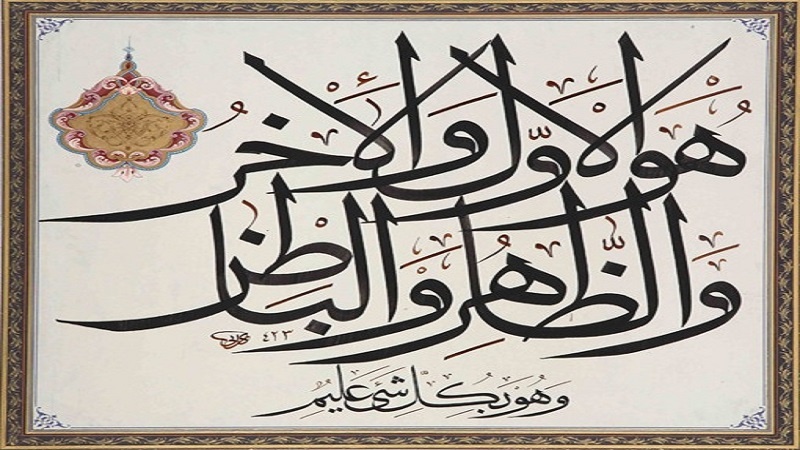 هُوَ الْأَوَّلُ وَالْآخِرُ
وَالظَّاهِرُ وَالْبَاطِنُ
٤٢٣
وَهُوَ بِكُلِّ شَیْءٍ عَلِیمٌ